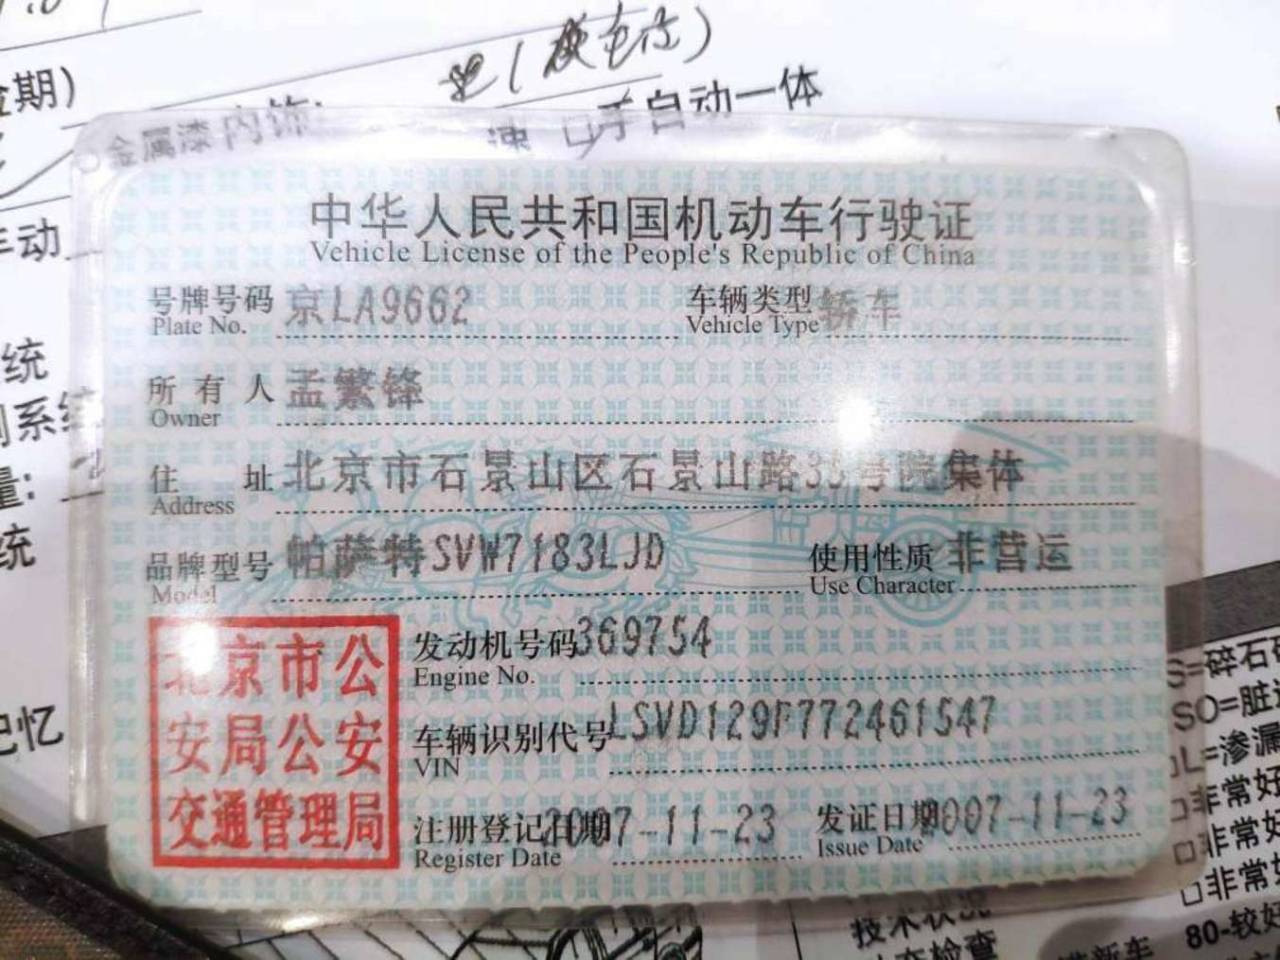 金期)
手自动一体
速
金属漆内饰:
中华人民共和国机动车行驶证
Vehicle License of the People's Republic of China
号牌号码 京LA9662 车辆类型 轿车
Plate No. Vehicle Type
所有人 孟繁锋
Owner
住址 北京市石景山区石景山路35号院集体
Address
品牌型号 帕萨特SVW7183LJD 使用性质 非营运
Model Use Character
北京市公
安局公安
交通管理局
发动机号码 369754
Engine No.
车辆识别代号 LSVD129F772461547
VIN
注册登记日期 2007-11-23 发证日期 2007-11-23
Register Date Issue Date
动
统
系统
量:
统
记忆
S=碎石
SO=脏
L=渗漏
□非常好
□非常好
□非常好
80-较好
技术状况